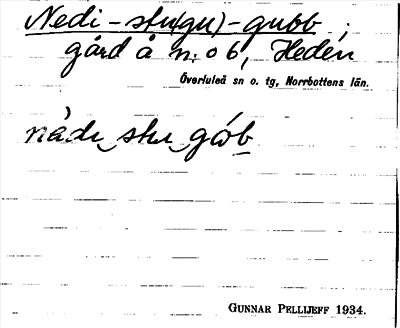 Nedi-stu(gu)-gubb,
gård å n:o 6, Heden
Överluleå sn o. tg, Norrbottens län.
nèdı stu gób
GUNNAR PELLIJEFF 1934.